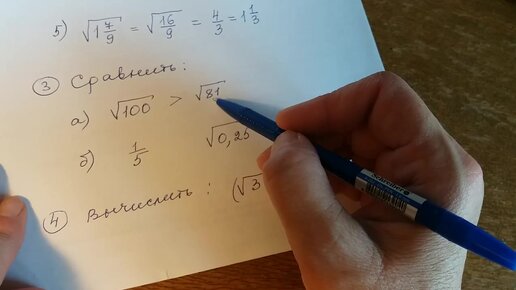 5) √1 7/9 = √16/9 = 4/3 = 1 1/3
③ Сравнить:
а) √100 > √81
б) 1/5 √0,25
④ Вычислить: (√3